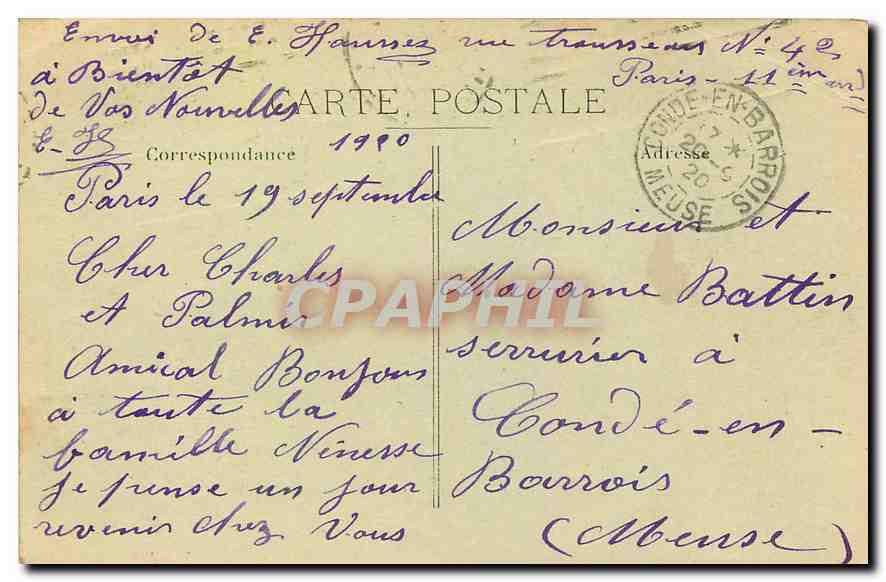 Envoi de E. Haussez rue trousseau N° 42
Paris - 11 ème arrd
à Bientôt
de Vos Nouvelles
E-H
CARTE POSTALE
Correspondance
1920
Adresse
CONDÉ-EN-BARROIS
17 *
20 - 9
20
MEUSE
Paris le 19 septembre
Cher Charles
et Palmir
Amical Bonjour
à toute la
famille Nénesse
je pense un jour
revenir chez Vous
Monsieur et
Madame Battin
serrurier à
Condé-en-
Barrois
(Meuse)
CPAPHIL